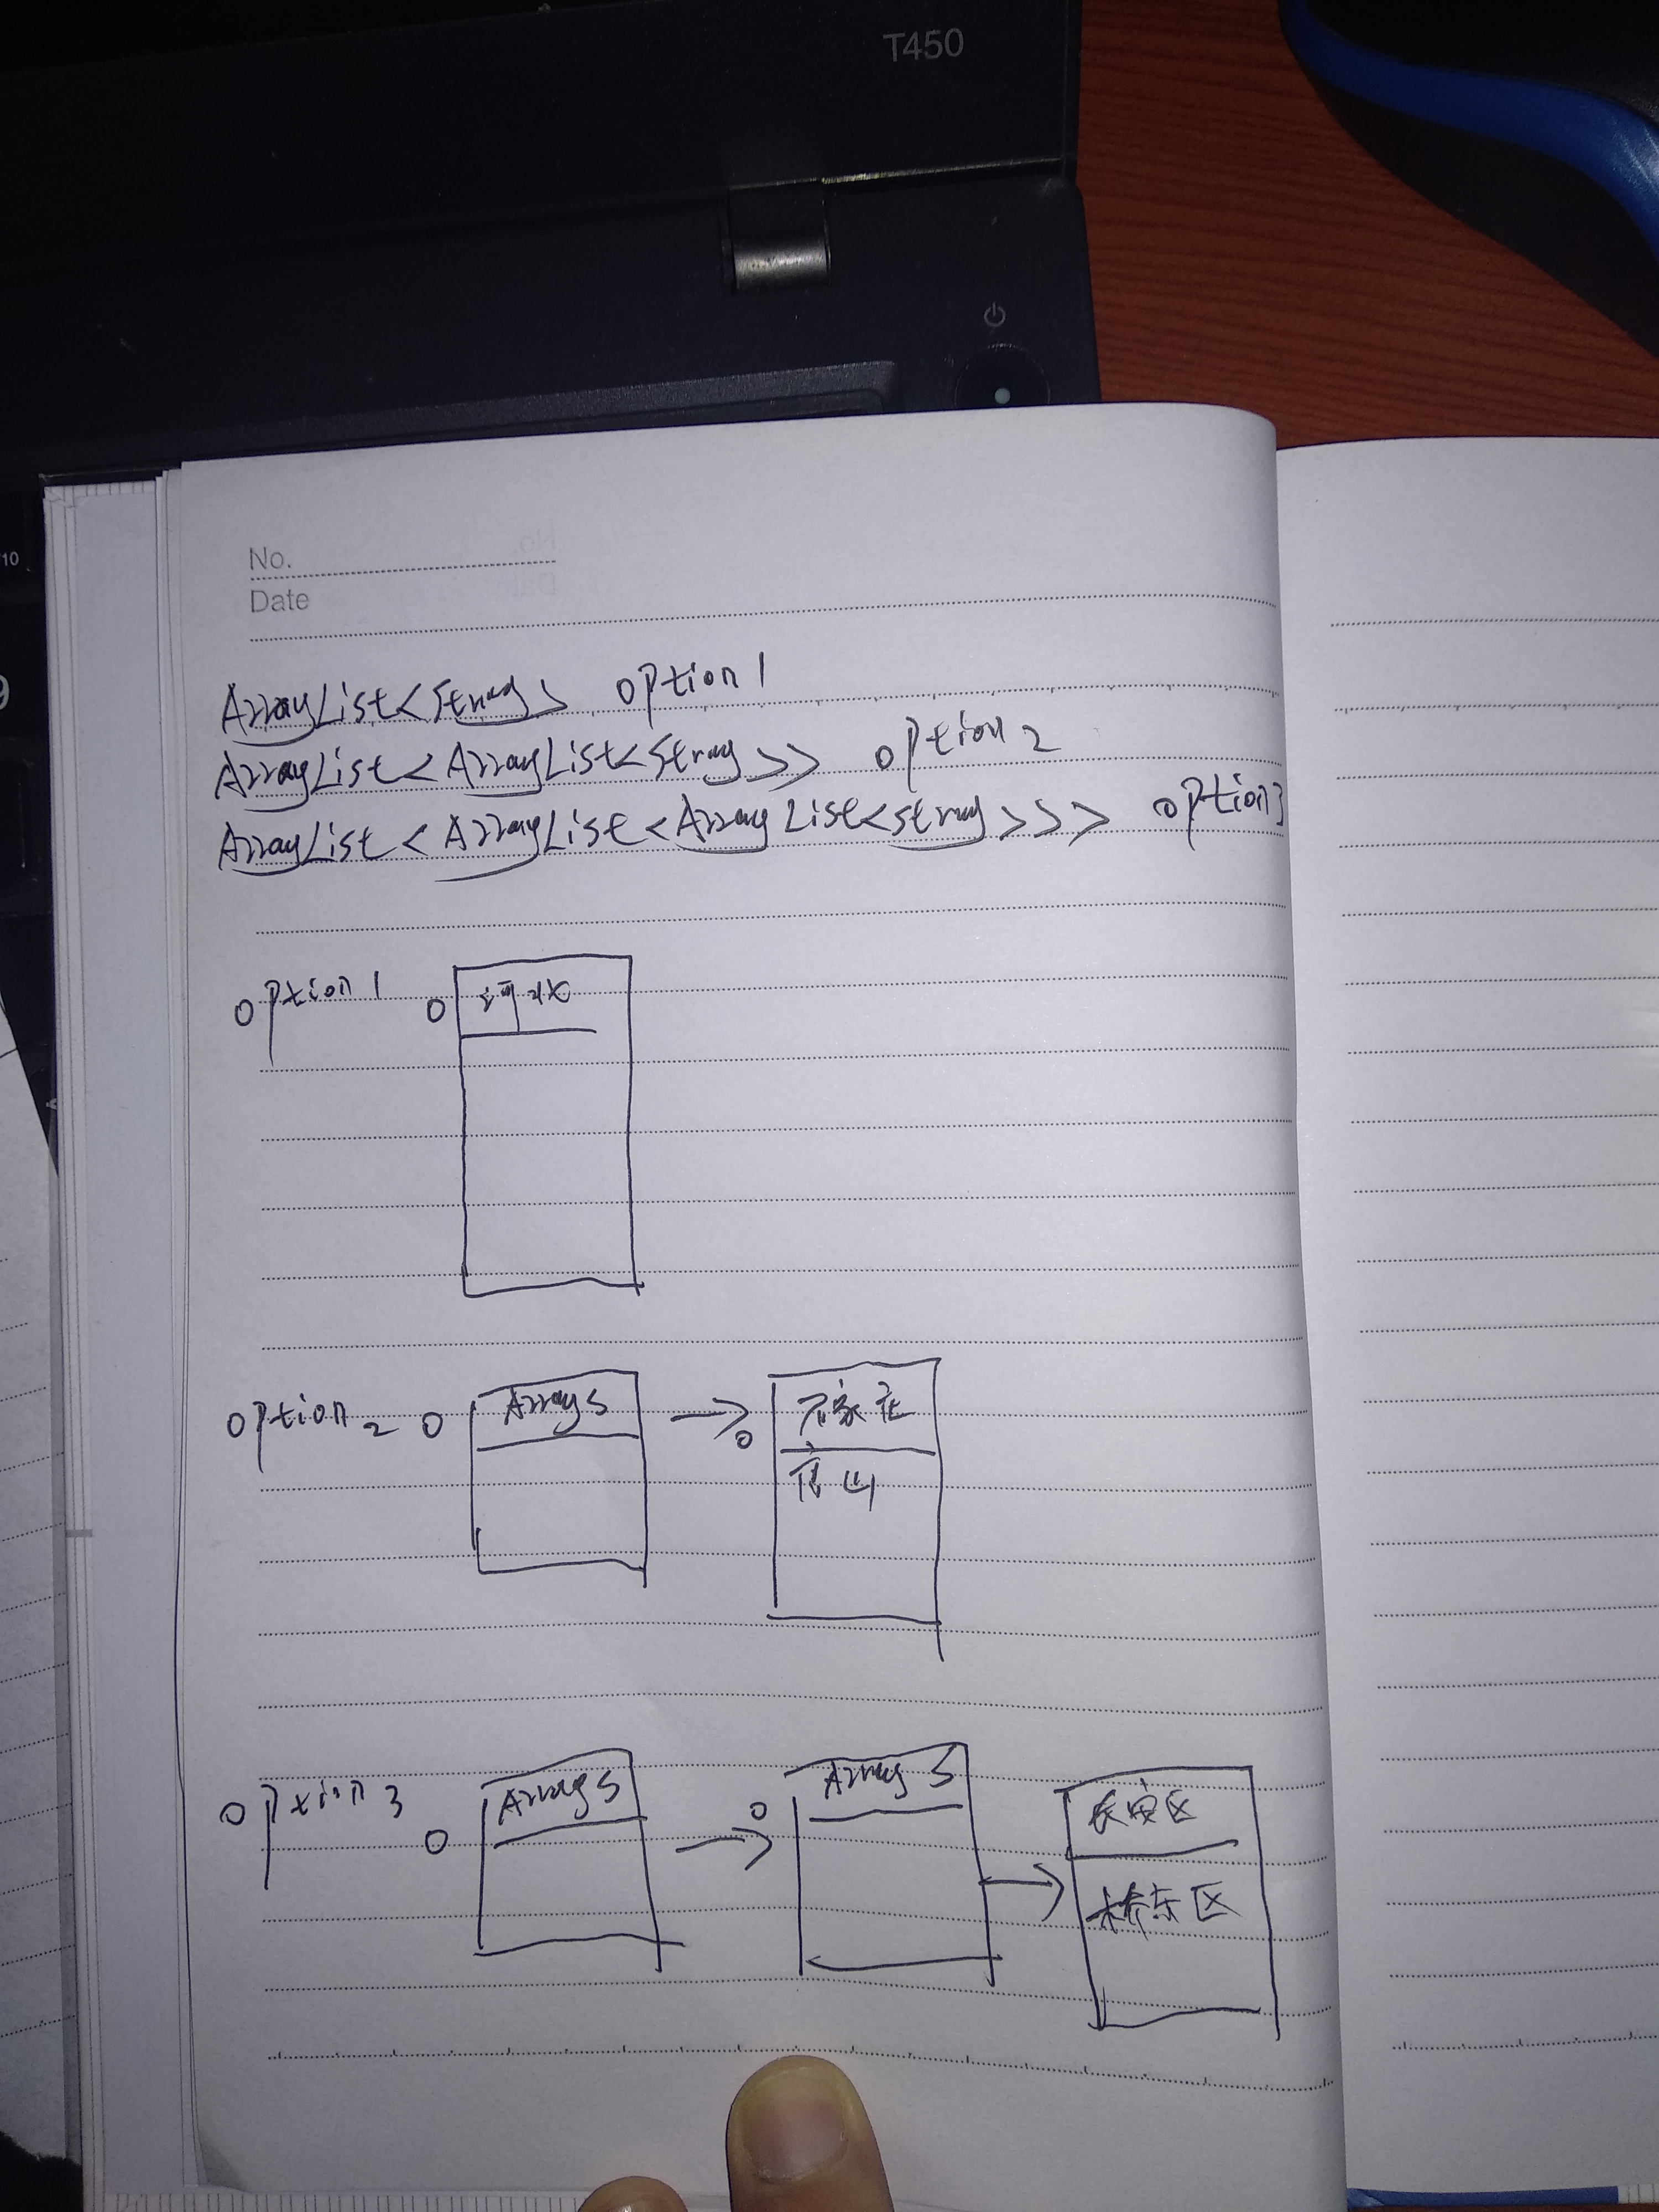 T450
No.
Date
ArrayList<String> option1
ArrayList<ArrayList<String>> option2
ArrayList<ArrayList<ArrayList<String>>> option3
option1 0 河北
option2 0 ArrayS → 0 石家庄
唐山
option3 0 ArrayS → 0 ArrayS → 长安区
桥东区